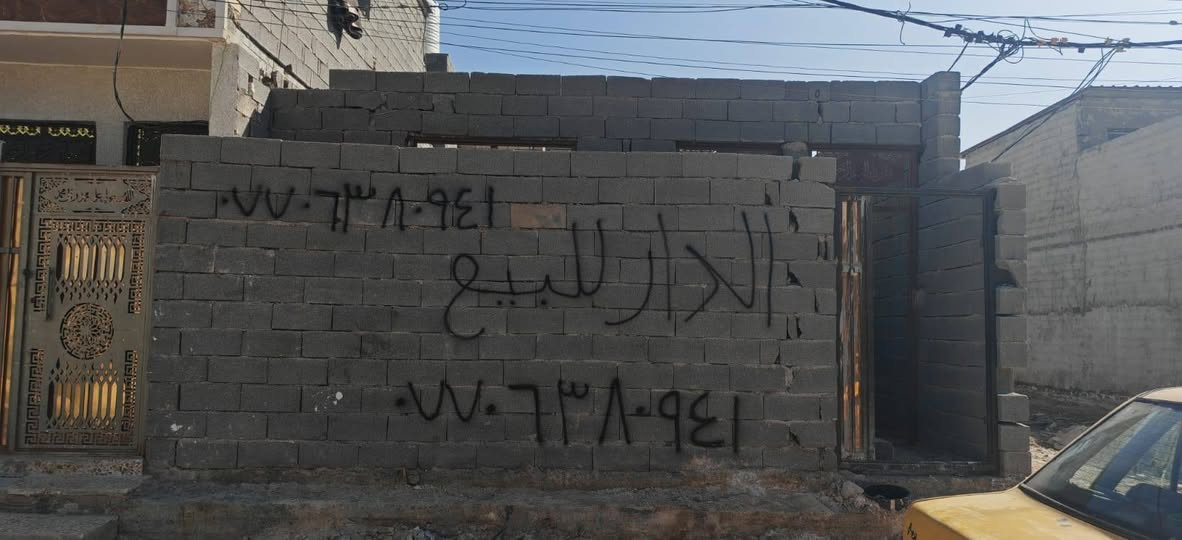 ٠٧٧٠٦٣٨٠٩٤١
الدار للبيع
٠٧٧٠٦٣٨٠٩٤١